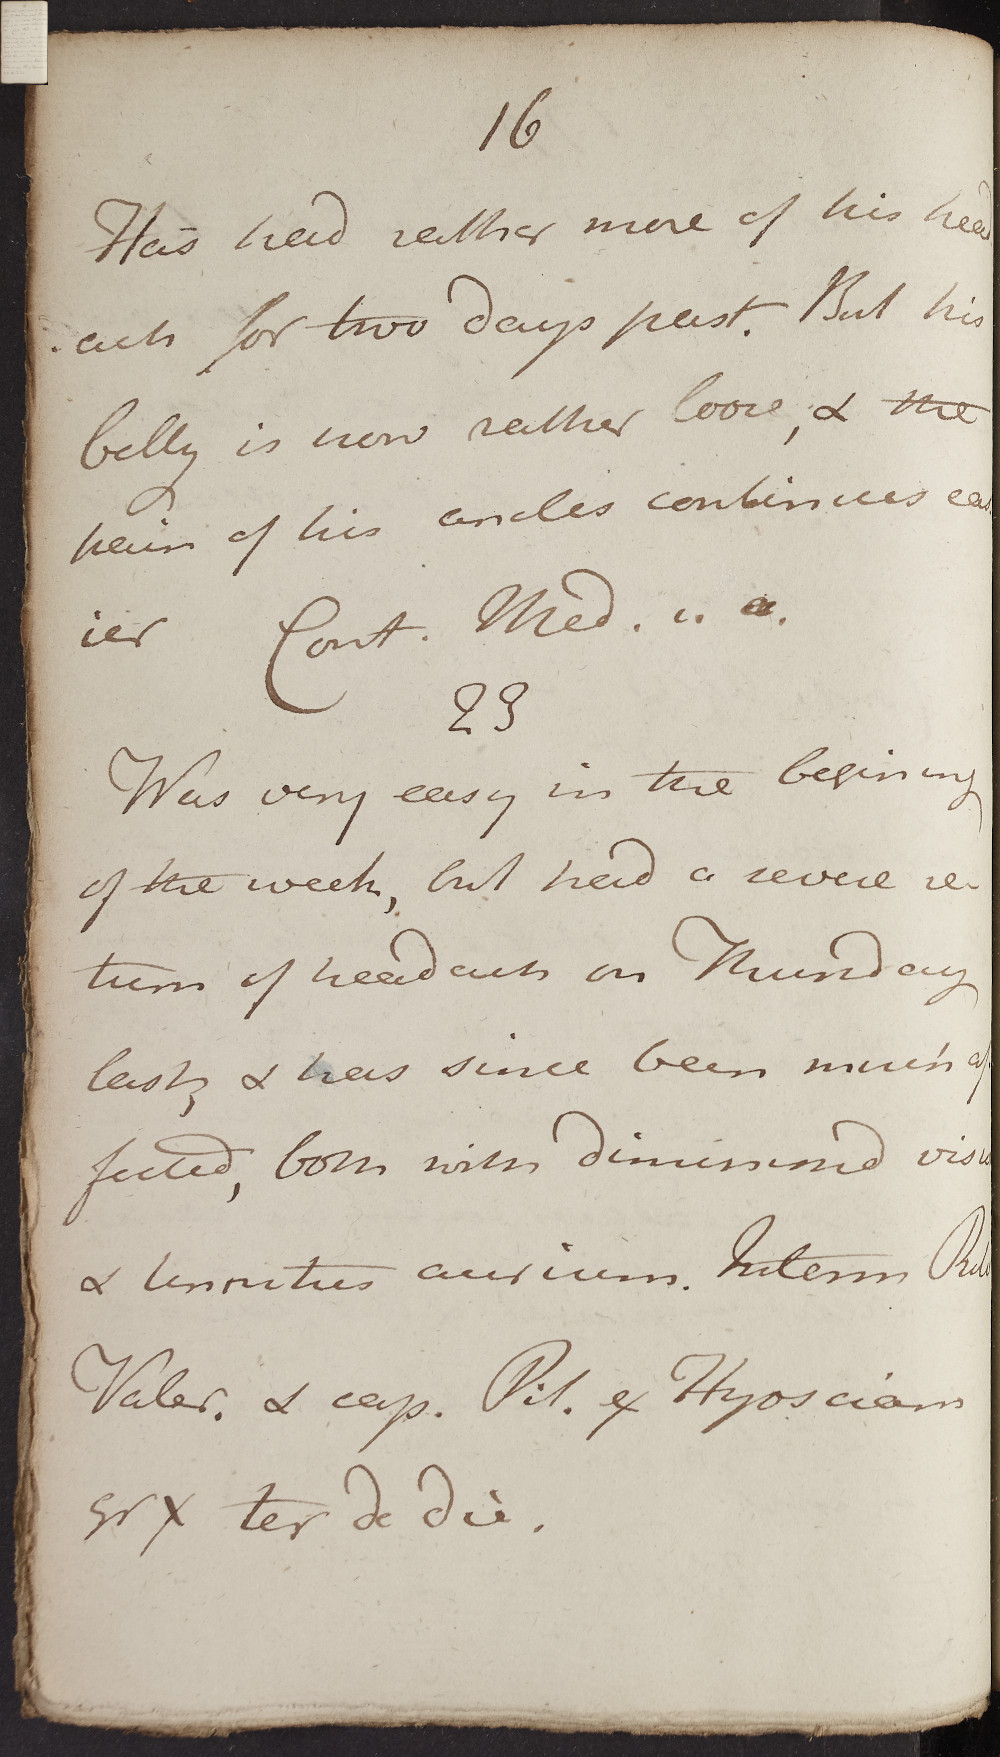 16
Has had rather more of his head
ach for two days past. But his
belly is now rather loose, & the
pain of his ancles continues eas
ier Cont. Med. u. a.
23
Was very easy in the begining
of the week, but had a severe re
turn of headach on Thursday
last, & has since been much af
fected, both with diminished visus
& tinnitus aurium. Interm Pulv
Valer. & cap. Pil. ex Hyosciam
gr x ter de die.